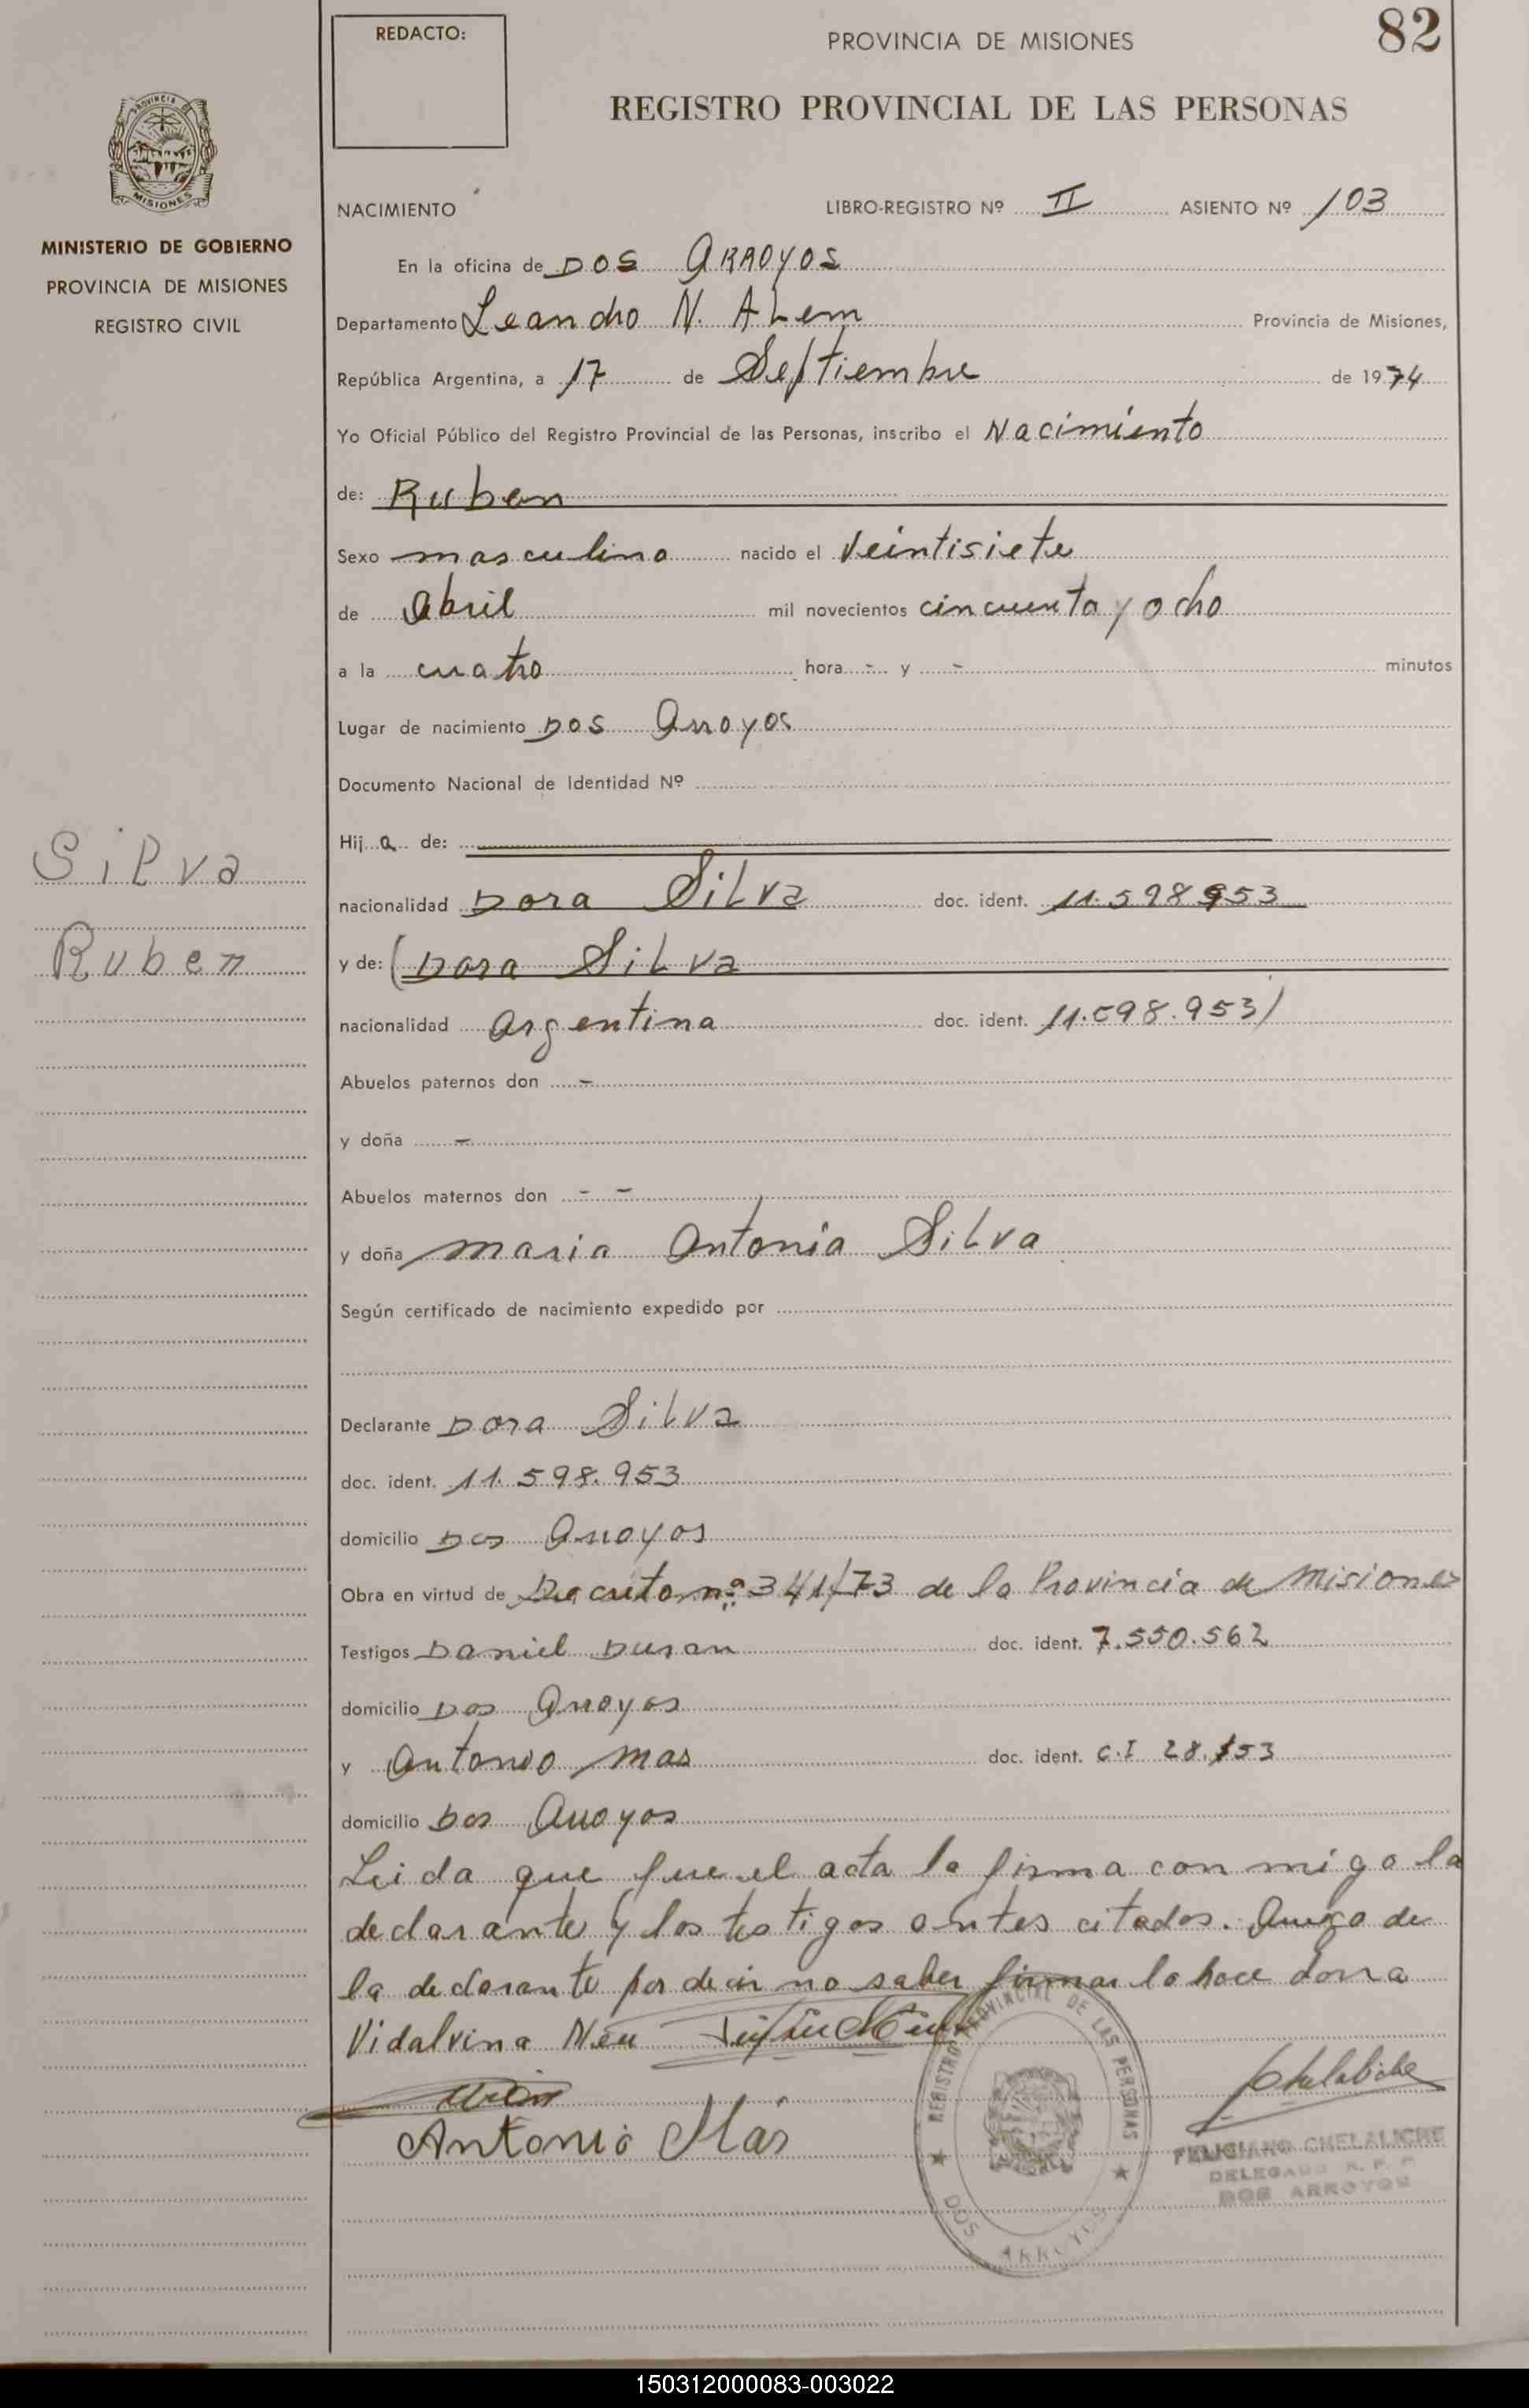 REDACTO:
PROVINCIA DE MISIONES
82
REGISTRO PROVINCIAL DE LAS PERSONAS
PROVINCIA DE
MISIONES
MINISTERIO DE GOBIERNO
PROVINCIA DE MISIONES
REGISTRO CIVIL
NACIMIENTO LIBRO-REGISTRO Nº II ASIENTO Nº 103
En la oficina de DOS ARROYOS
Departamento Leandro N. ALem Provincia de Misiones,
República Argentina, a 17 de Septiembre de 1974
Yo Oficial Público del Registro Provincial de las Personas, inscribo el Nacimiento
de: Ruben
Sexo masculino nacido el Veintisiete
de Abril mil novecientos cincuenta y ocho
a la cuatro hora - y - minutos
Lugar de nacimiento DOS Arroyos
Documento Nacional de Identidad Nº
Hij a de:
Silva
nacionalidad Dora Silva doc. ident. 11.598953
Ruben
y de: (Dora Silva
nacionalidad Argentina doc. ident. 11.598.953)
Abuelos paternos don -
y doña -
Abuelos maternos don - -
y doña maria Antonia Silva
Según certificado de nacimiento expedido por
Declarante Dora Silva
doc. ident. 11.598.953
domicilio Dos Arroyos
Obra en virtud de Decreto nº 341/73 de la Provincia de Misiones
Testigos Daniel Duran doc. ident. 7.550.562
domicilio Dos Arroyos
y Antonio mas doc. ident. C.I 28.153
domicilio Dos Arroyos
Leida que fue el acta la firma con migo la
declarante y los testigos antes citados. Ruego de
la declarante por decir no saber firmar lo hace dona
Vidalvina Neu
Antonio Más
REGISTRO PROVINCIAL DE LAS PERSONAS
DOS ARROYOS
FELICIANO CHELALICHE
DELEGADO R. P. P.
DOS ARROYOS
150312000083-003022